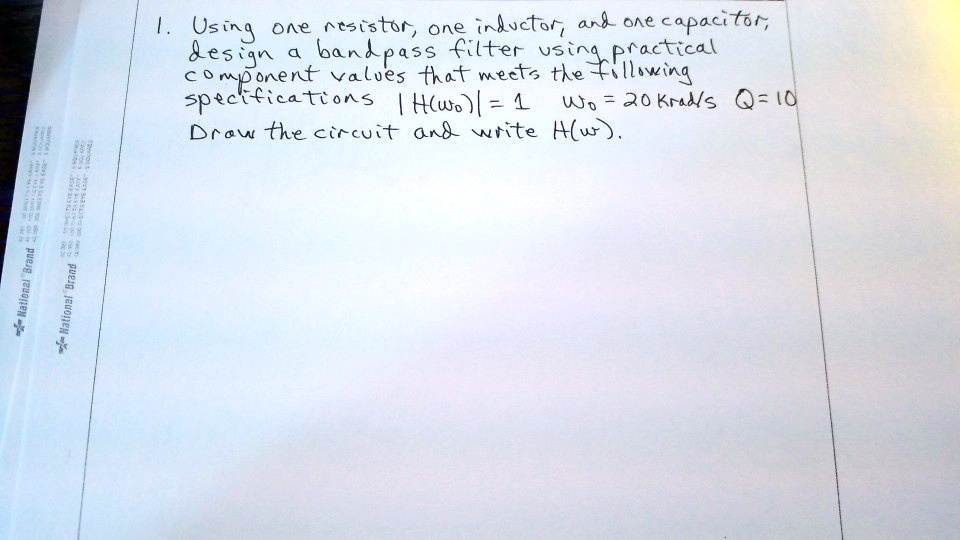 1. Using one resistor, one inductor, and one capacitor,
design a bandpass filter using practical
component values that meets the following
specifications |H(ω₀)| = 1 ω₀ = 20 Krad/s Q = 10
Draw the circuit and write H(ω).
National Brand
National Brand